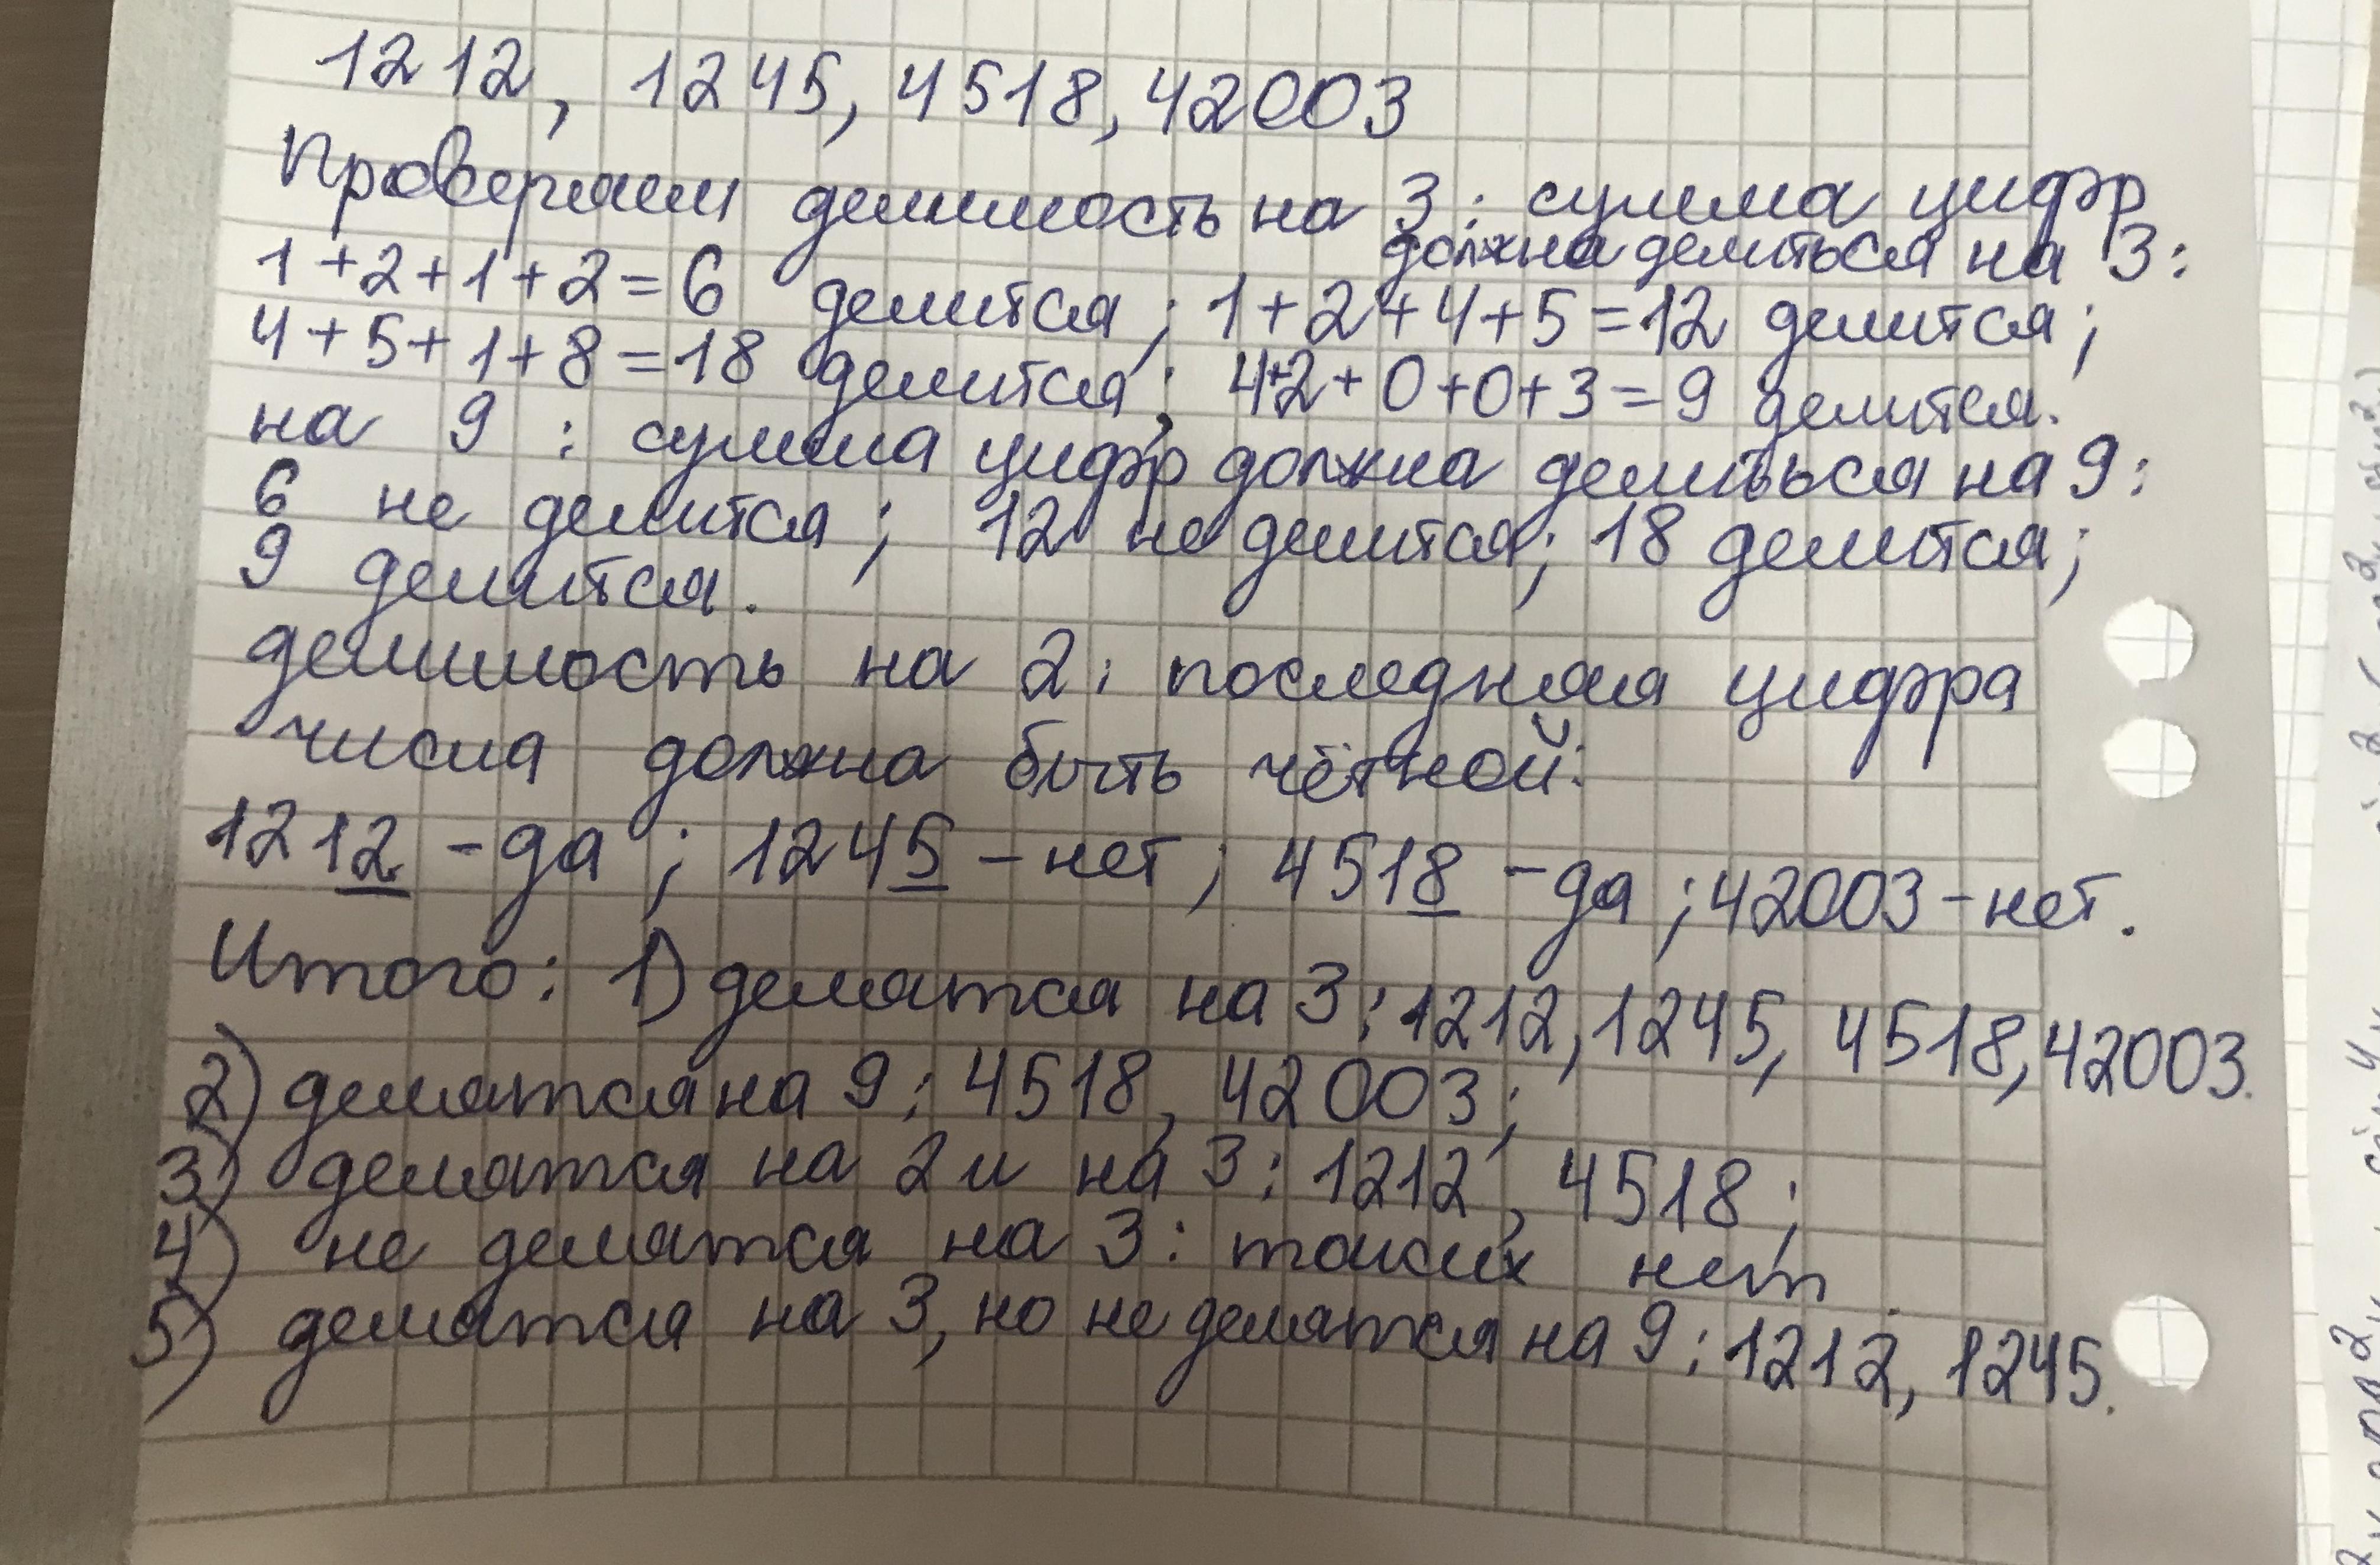 1212, 1245, 4518, 42003
Проверяем делимость на 3: сумма цифр
должна делиться на 3:
1+2+1+2=6 делится; 1+2+4+5=12 делится;
4+5+1+8=18 делится; 4+2+0+0+3=9 делится.
на 9: сумма цифр должна делиться на 9:
6 не делится; 12 не делится; 18 делится;
9 делится.
делимость на 2: последняя цифра
числа должна быть чётной:
1212 - да; 1245 - нет; 4518 - да; 42003 - нет.
Итого: 1) делятся на 3: 1212, 1245, 4518, 42003.
2) делятся на 9: 4518, 42003;
3) делятся на 2 и на 3: 1212, 4518;
4) не делятся на 3: таких нет
5) делятся на 3, но не делятся на 9: 1212, 1245.